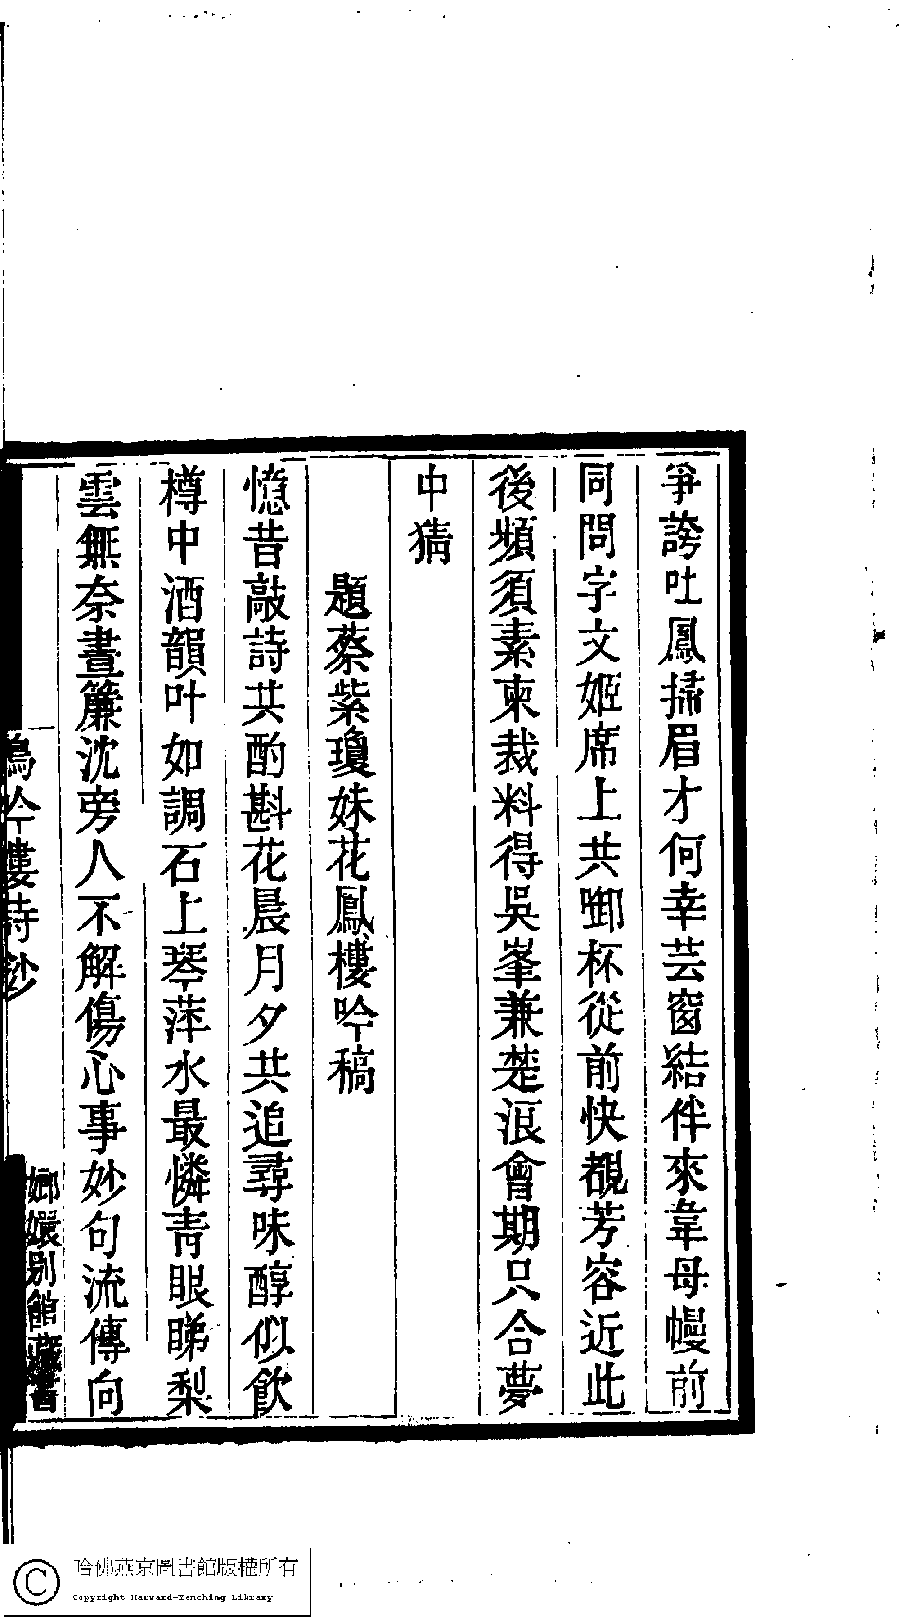 爭誇吐鳳掃眉才何幸芸窗結伴來韋母幔前
同問字文姬席上共啣杯從前快覩芳容近此
後頻須素柬裁料得吳峯兼楚浪會期只合夢
中猜
題蔡紫瓊妹花鳳樓吟稿
憶昔敲詩共酌斟花晨月夕共追尋味醇似飲
樽中酒韻叶如調石上琴萍水最憐靑眼睇梨
雲無奈晝簾沈旁人不解傷心事妙句流傳向
鳴吟樓詩鈔
嫏嬛別館藏書
哈佛燕京圖書館版權所有
Copyright Harvard-Yenching Library